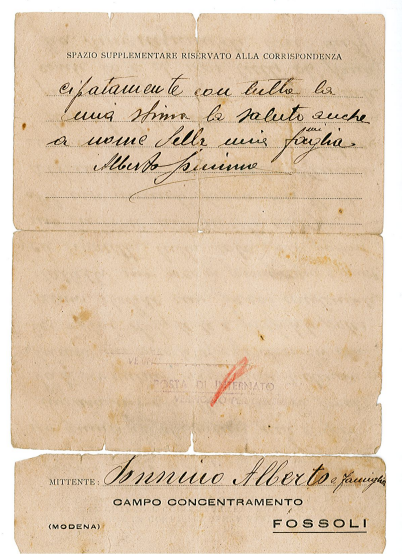 SPAZIO SUPPLEMENTARE RISERVATO ALLA CORRISPONDENZA
cipatamente con tutta la
mia stima la saluto anche
a nome della mia famiglia
Alberto Sonnino
MITTENTE: Sonnino Alberto e famiglia
CAMPO CONCENTRAMENTO
(MODENA) FOSSOLI